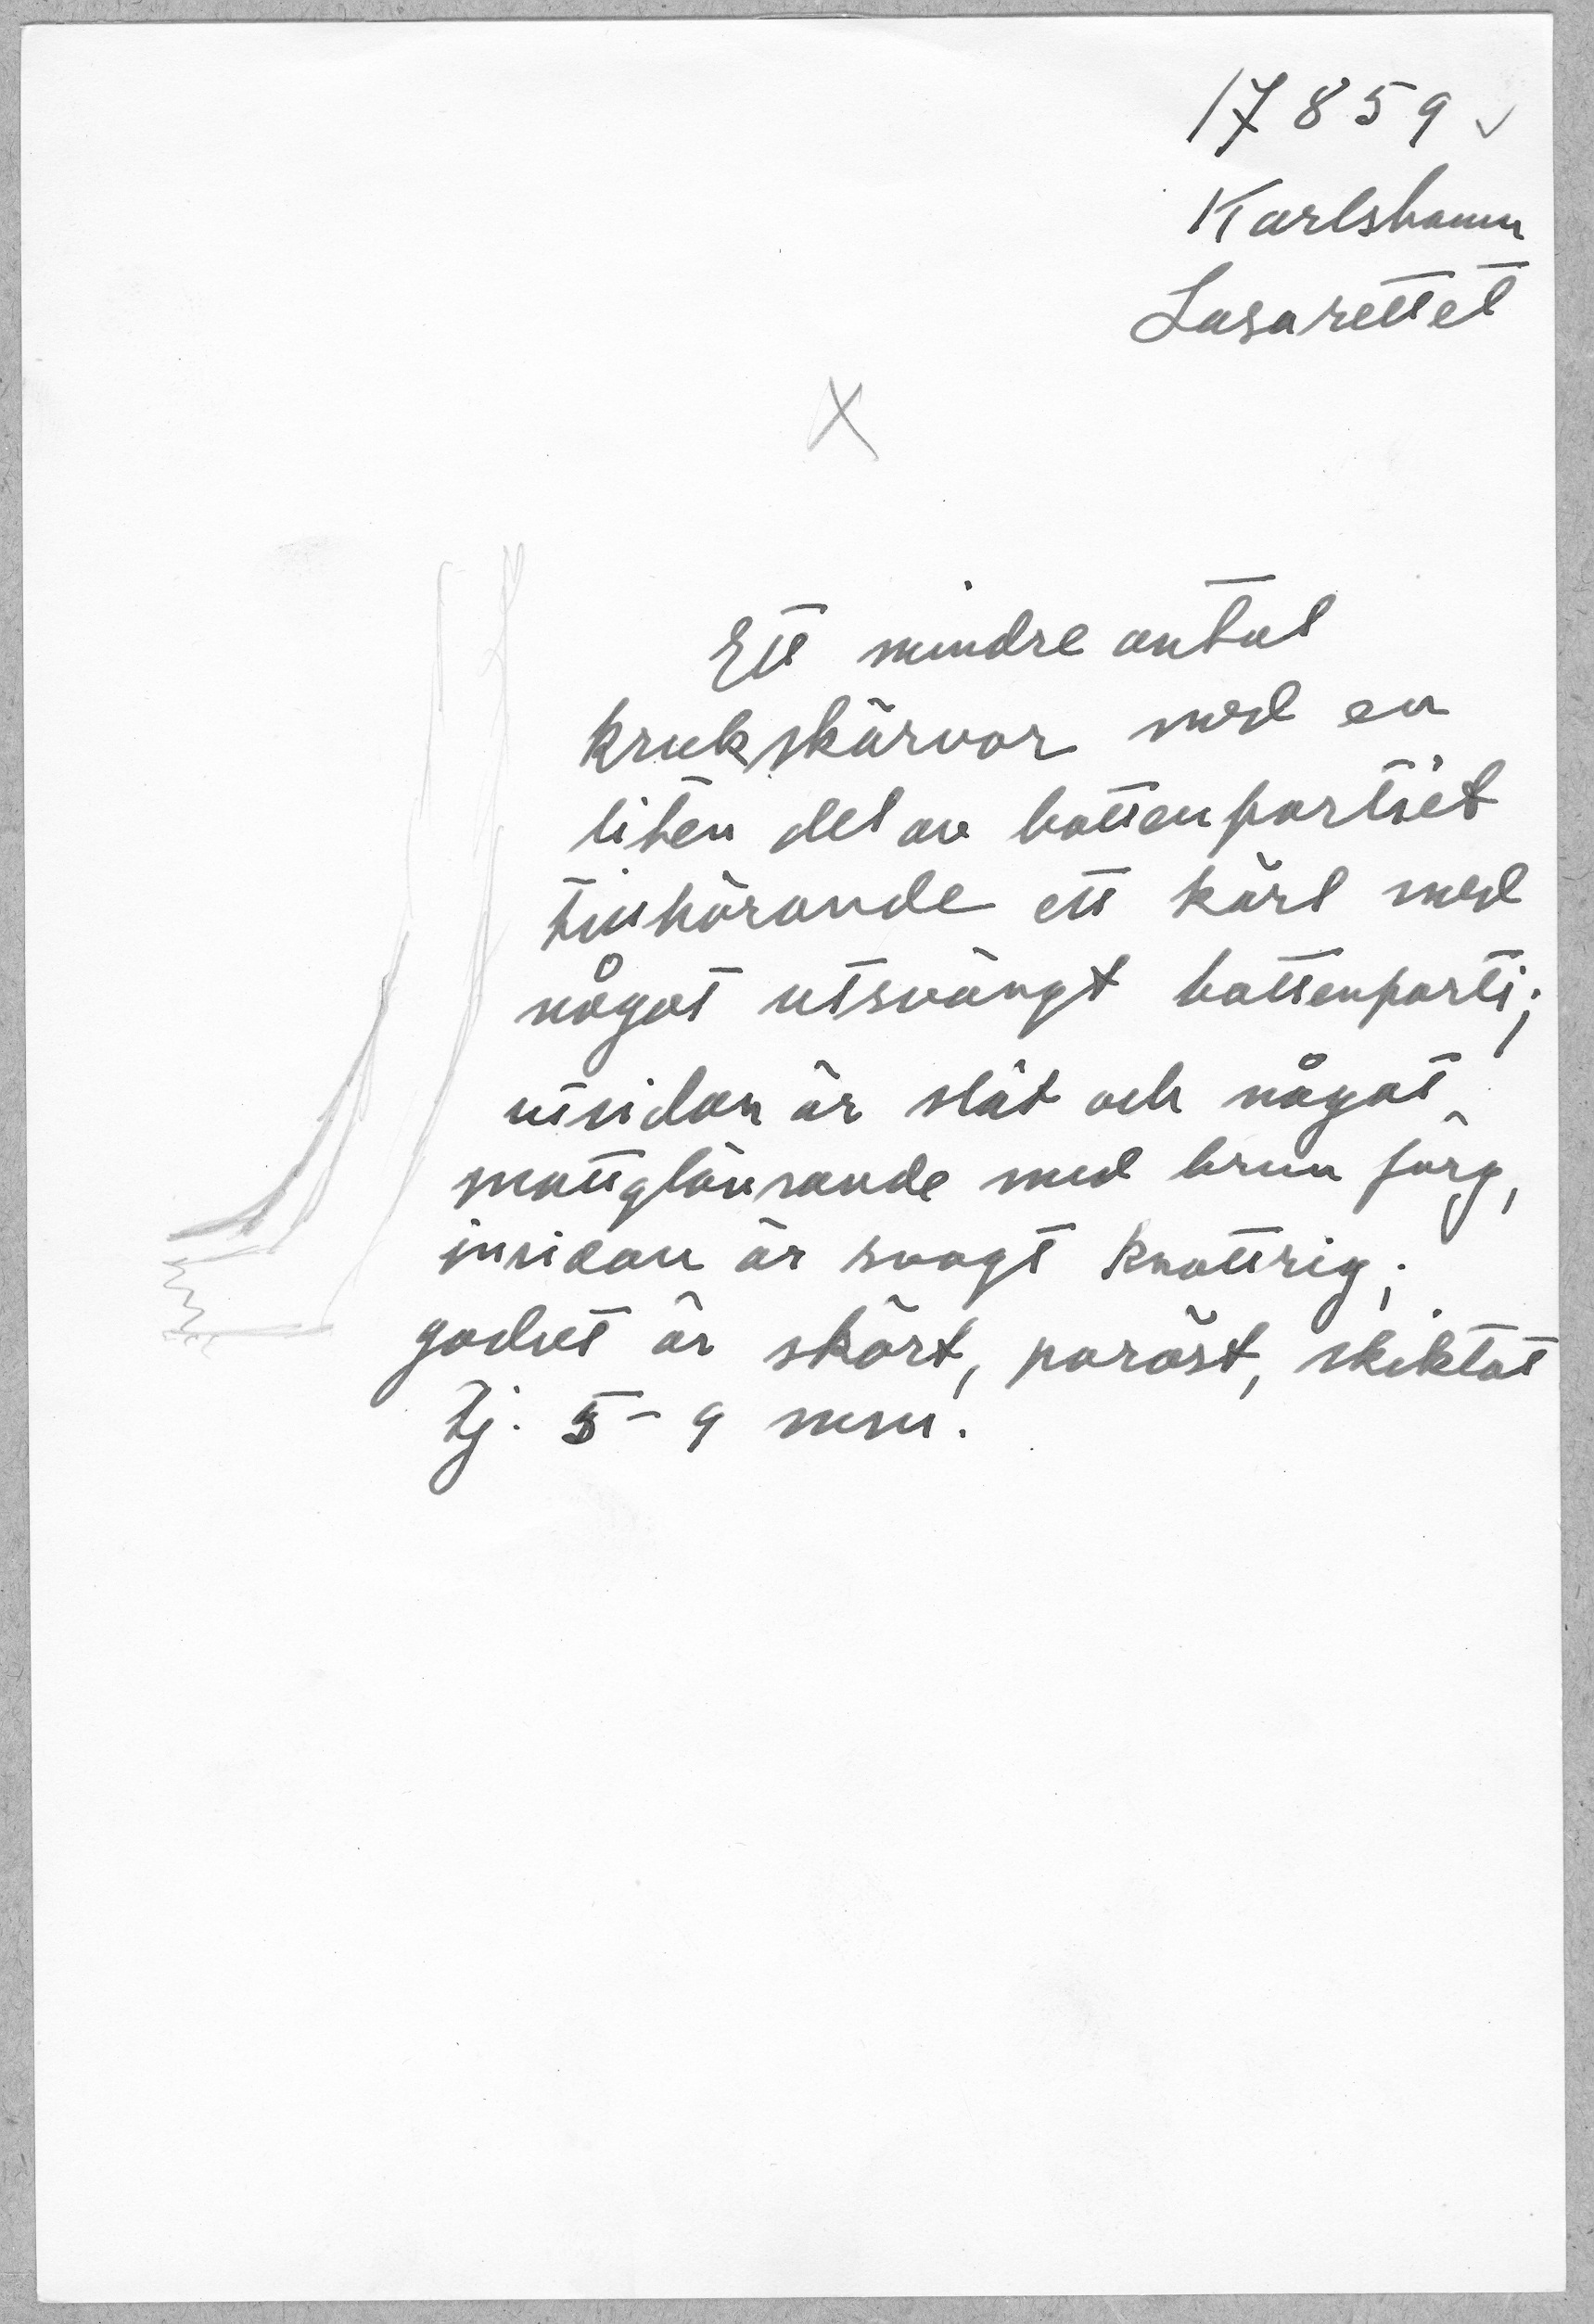 17859 ✓
Karlshamn
Lasarettet
X
Ett mindre antal
krukskärvor med en
liten del av bottenpartiet
tillhörande ett kärl med
något utsvängt bottenparti;
utsidan är slät och något
mattglänsande med brun färg,
insidan är svagt knottrig;
godset är skört, poröst, skiktat
Tj. 5-9 mm.